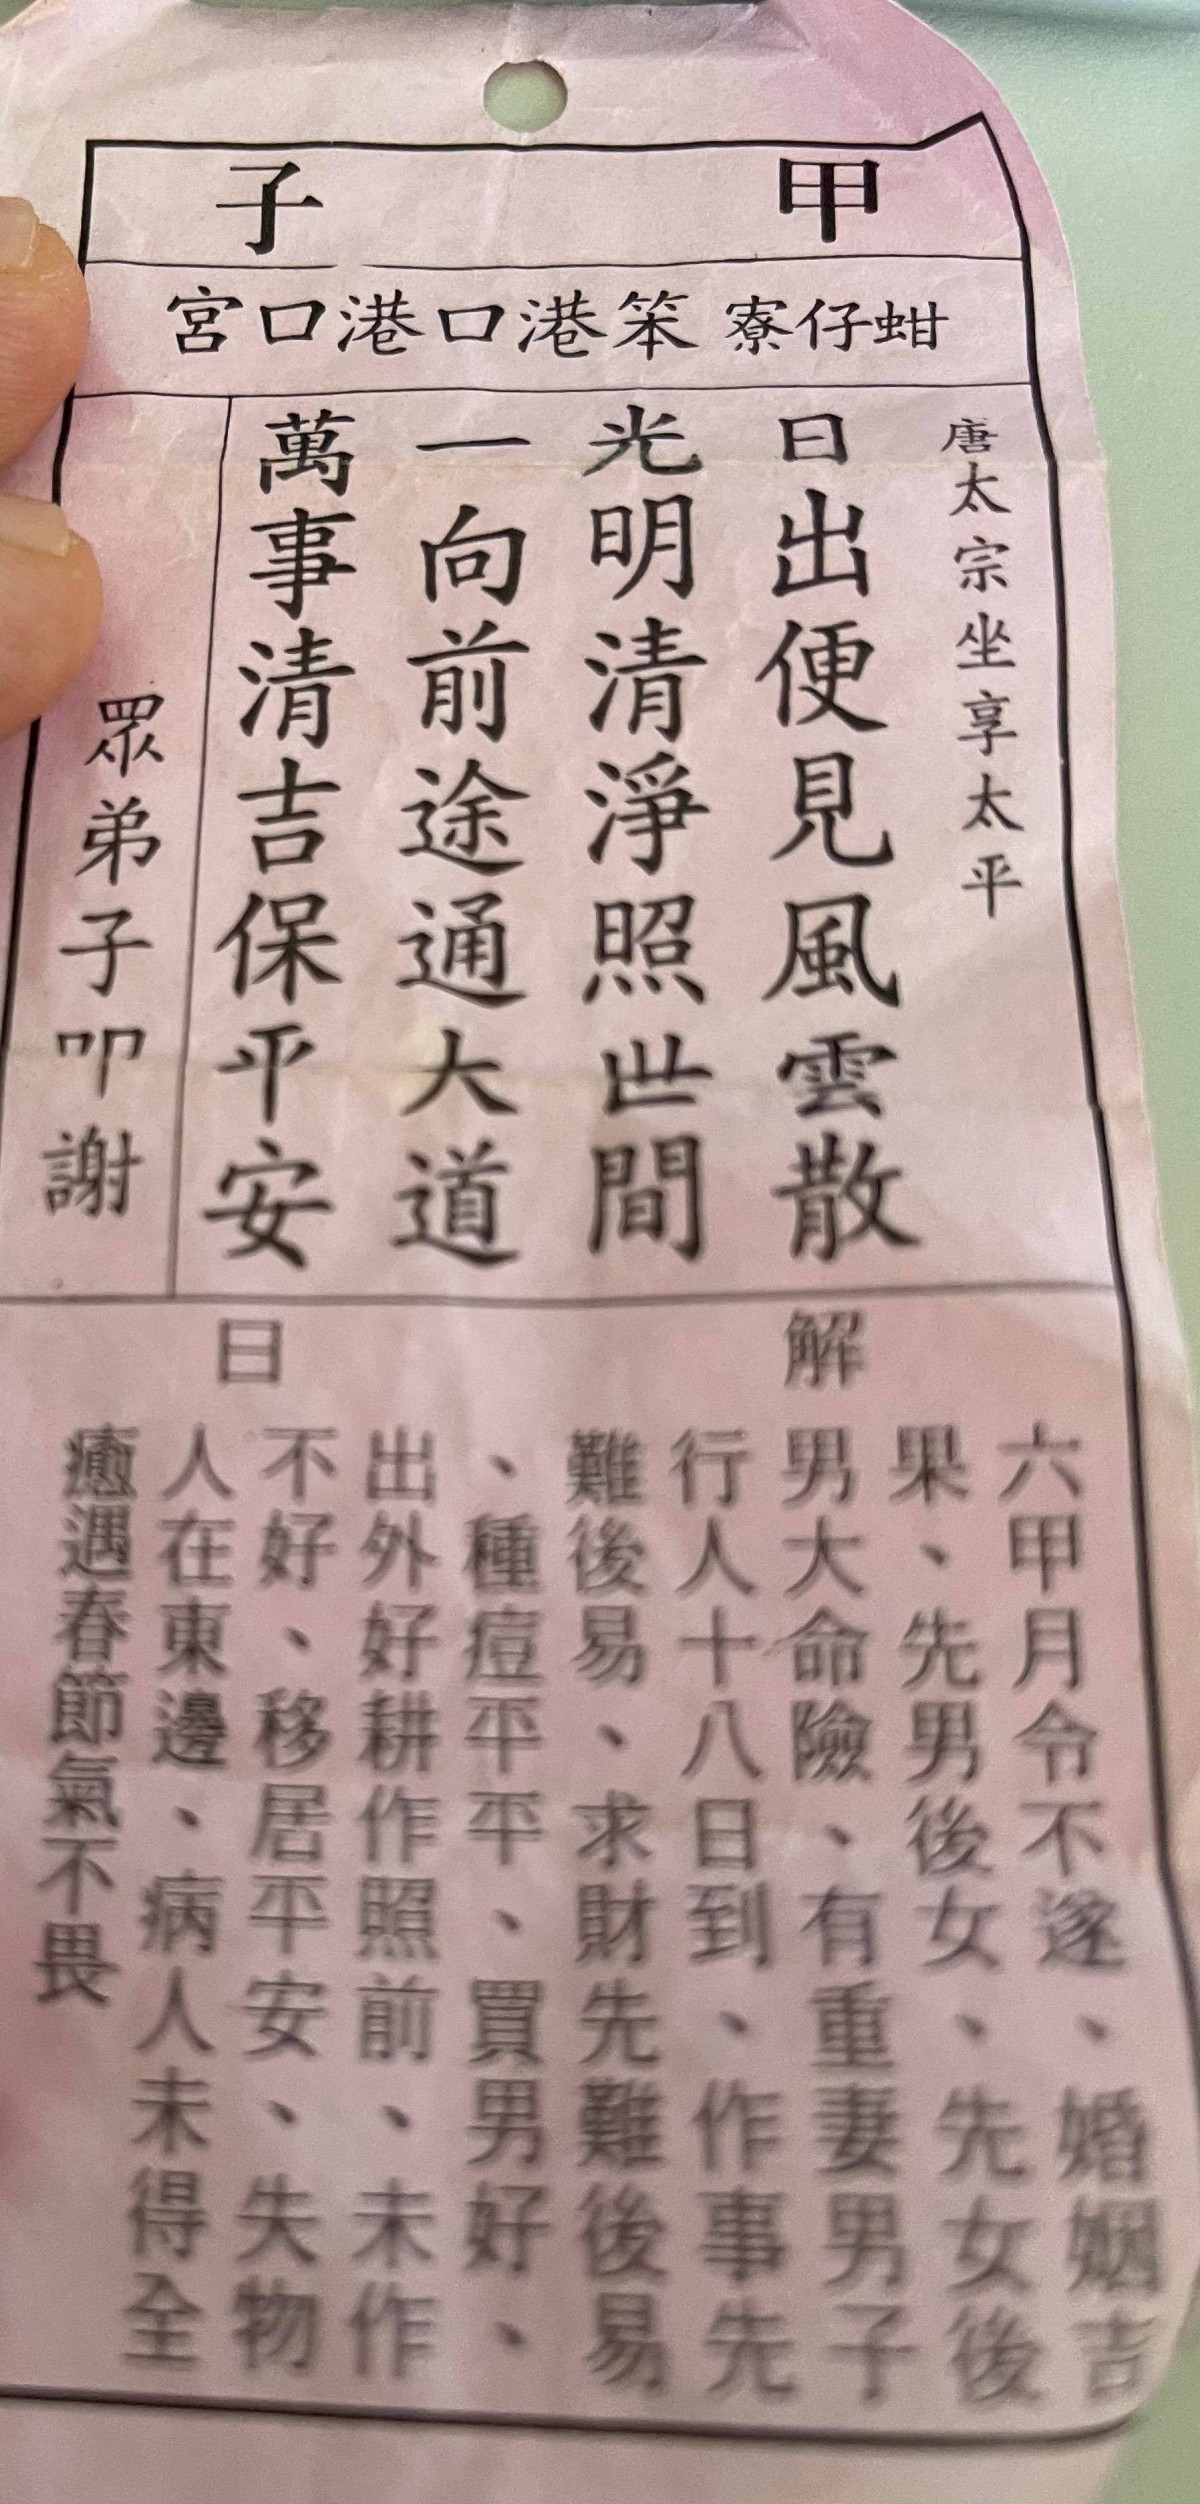 甲子
蚶仔寮 笨港口港口宮
唐太宗坐享太平
日出便見風雲散
光明清淨照世間
一向前途通大道
萬事清吉保平安
眾弟子叩謝
解曰
六甲月令不遂、婚姻吉
果、先男後女、先女後
男大命險、有重妻男子
行人十八日到、作事先
難後易、求財先難後易
、種痘平平、買男好、
出外好耕作照前、未作
不好、移居平安、失物
人在東邊、病人未得全
癒遇春節氣不畏